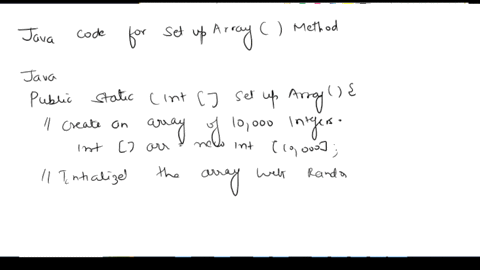 Java code for Set up Array () Method
Java
Public static (int [] Set up Array () {
// Create an array of 10,000 Integers.
int [] arr = new int [10,000];
// Initialized the array with Rando